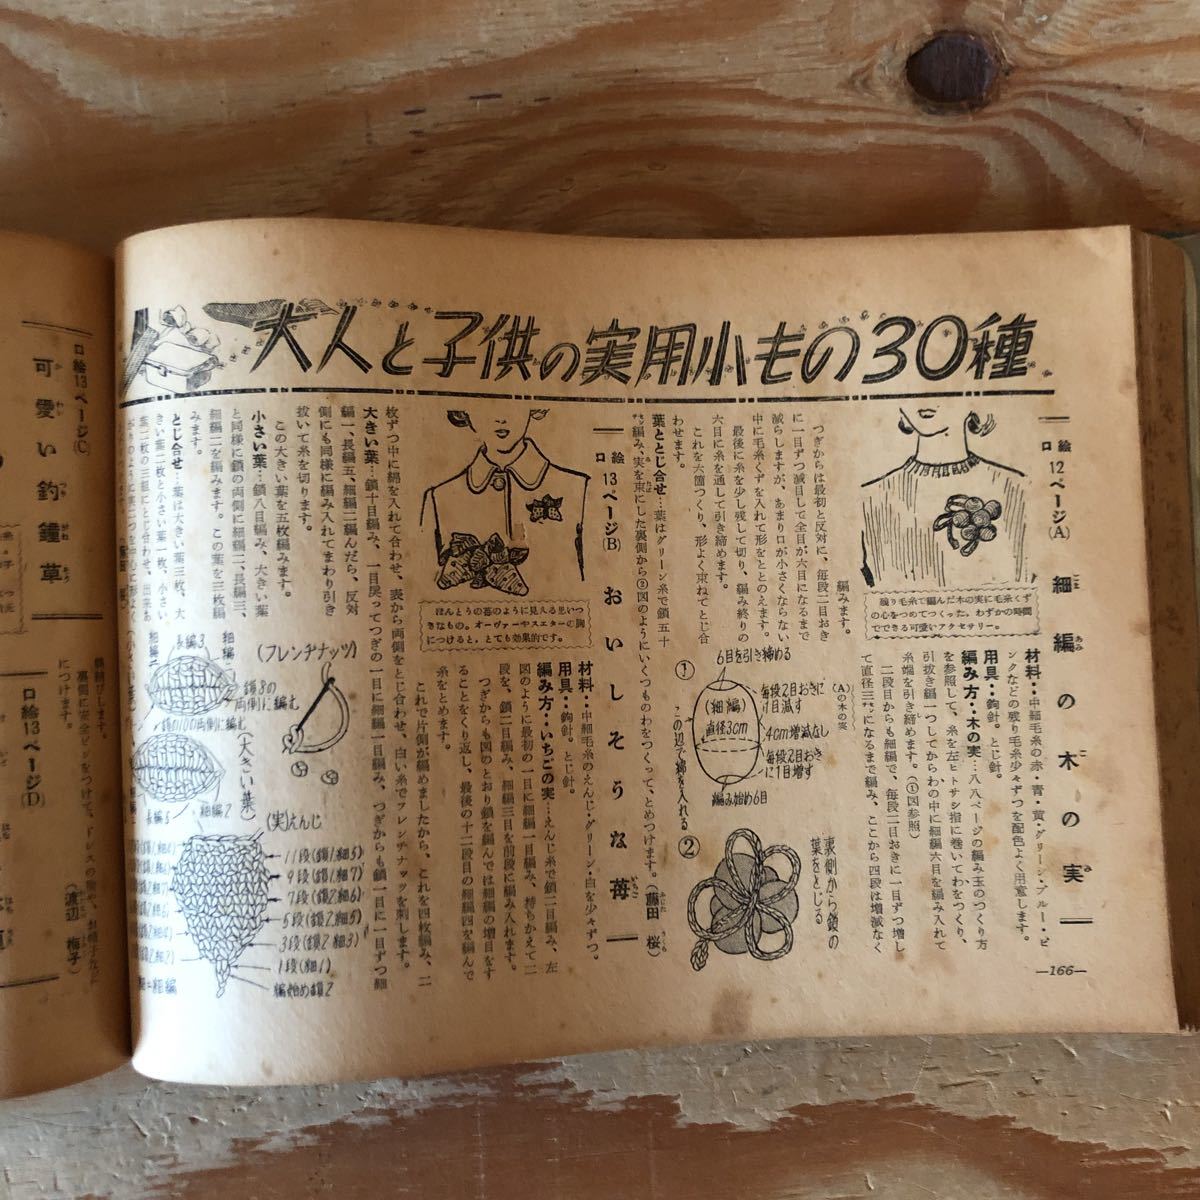 大人と子供の実用小もの30種
口絵12ページ(A)
細編の木の実
残り毛糸で編んだ木の実に毛糸くず
の心をつめてつくった、わずかの時間
でできる可愛いアクセサリー。
材料‥中細毛糸の赤・青・黄・グリーン・ブルー・ピ
ンクなどの残り毛糸少々ずつを配色よく用意します。
用具‥鉤針。とじ針。
編み方‥木の実…八八ページの編み玉のつくり方
を参照して、糸を左ヒトサシ指に巻いてわをつくり、
引抜き編一つしてからわの中に細編六目を編み入れて
糸端を引き締めます。(①図参照)
二段目からも細編で、毎段二目おきに一目ずつ増し
て直径三センチになるまで編み、ここから四段は増減なく
編みます。
つぎからは最初と反対に、毎段二目おき
に一目ずつ減目して全目が六目になるまで
減らしますが、あまり口が小さくならない
中に毛糸くずを入れて形をととのえます。
最後に糸を少し残して切り、編み終りの
六目に糸を通して引き締めます。
これを六箇つくり、形よく束ねてとじ合
わせます。
葉ととじ合せ…葉はグリーン糸で鎖五十
編み、実を束にした裏側から②図のようにいくつものわをつくって、とめつけます。(藤田 桜)
(Aの木の実)
①
6目を引き締める
毎段2目おきに
1目減す
4cm増減なし
毎段2目おき
に1目増す
(細編)
直径3cm
編み始め6目
この辺で綿を入れる
②
裏側から鎖の
葉をとじる
口絵13ページ(B)
おいしそうな苺
ほんとうの苺のように見える思いつ
きなもの。オーヴァーやスエターの胸
につけると、とても効果的です。
材料‥中細毛糸のえんじ・グリーン・白を少々ずつ。
用具‥鉤針。とじ針。
編み方‥いちごの実…えんじ糸で鎖二目編み、左
図のように最初の一目に細編一目編み、持ちかえて二
段を、鎖二目編み、細編三目を前段に編み入れます。
つぎからも図のとおり鎖を編んでは細編の増目をす
ることをくり返し、最後の十二段目の細編四を編んで
糸をとめます。
これで片側が編めましたから、これを四枚編み、二
枚ずつ中に綿を入れて合わせ、表から両側をとじ合わせ、白い糸でフレンチナッツを刺します。
大きい葉…鎖十目編み、一目戻ってつぎの一目に細編一目編み、つぎからも鎖一目に一目ずつ細
編一、長編五、細編二編んだら、反対
側にも同様に編み入れてまわり引き
抜いて糸を切ります。
この大きい葉を五枚編みます。
小さい葉…鎖八目編み、大きい葉
と同様に鎖の両側に細編二、長編三、
細編二を編みます。この葉を三枚編
みます。
とじ合せ…葉は大きい葉三枚、大
きい葉二枚と小さい葉一枚、小さい
葉二枚の三組にとじ合わせ、出来あ
(フレンチナッツ)
細編
長編3
鎖8の
両側に編む
鎖の10の両側に編む
(大きい葉)
細編2
長編5
(実)えんじ
11段(鎖1.細5)
9段(鎖1.細7)
7段(鎖2.細6)
5段(鎖2.細5)
3段(鎖2.細3)
1段(細1)
編始め鎖2
—166—
口絵13ページ(C)
可愛い釣鐘草
口絵13ページ(D)
裏側に安全ピンをつけて、ドレスの胸や、お帽子などに
につけます。
(渡辺 梅子)